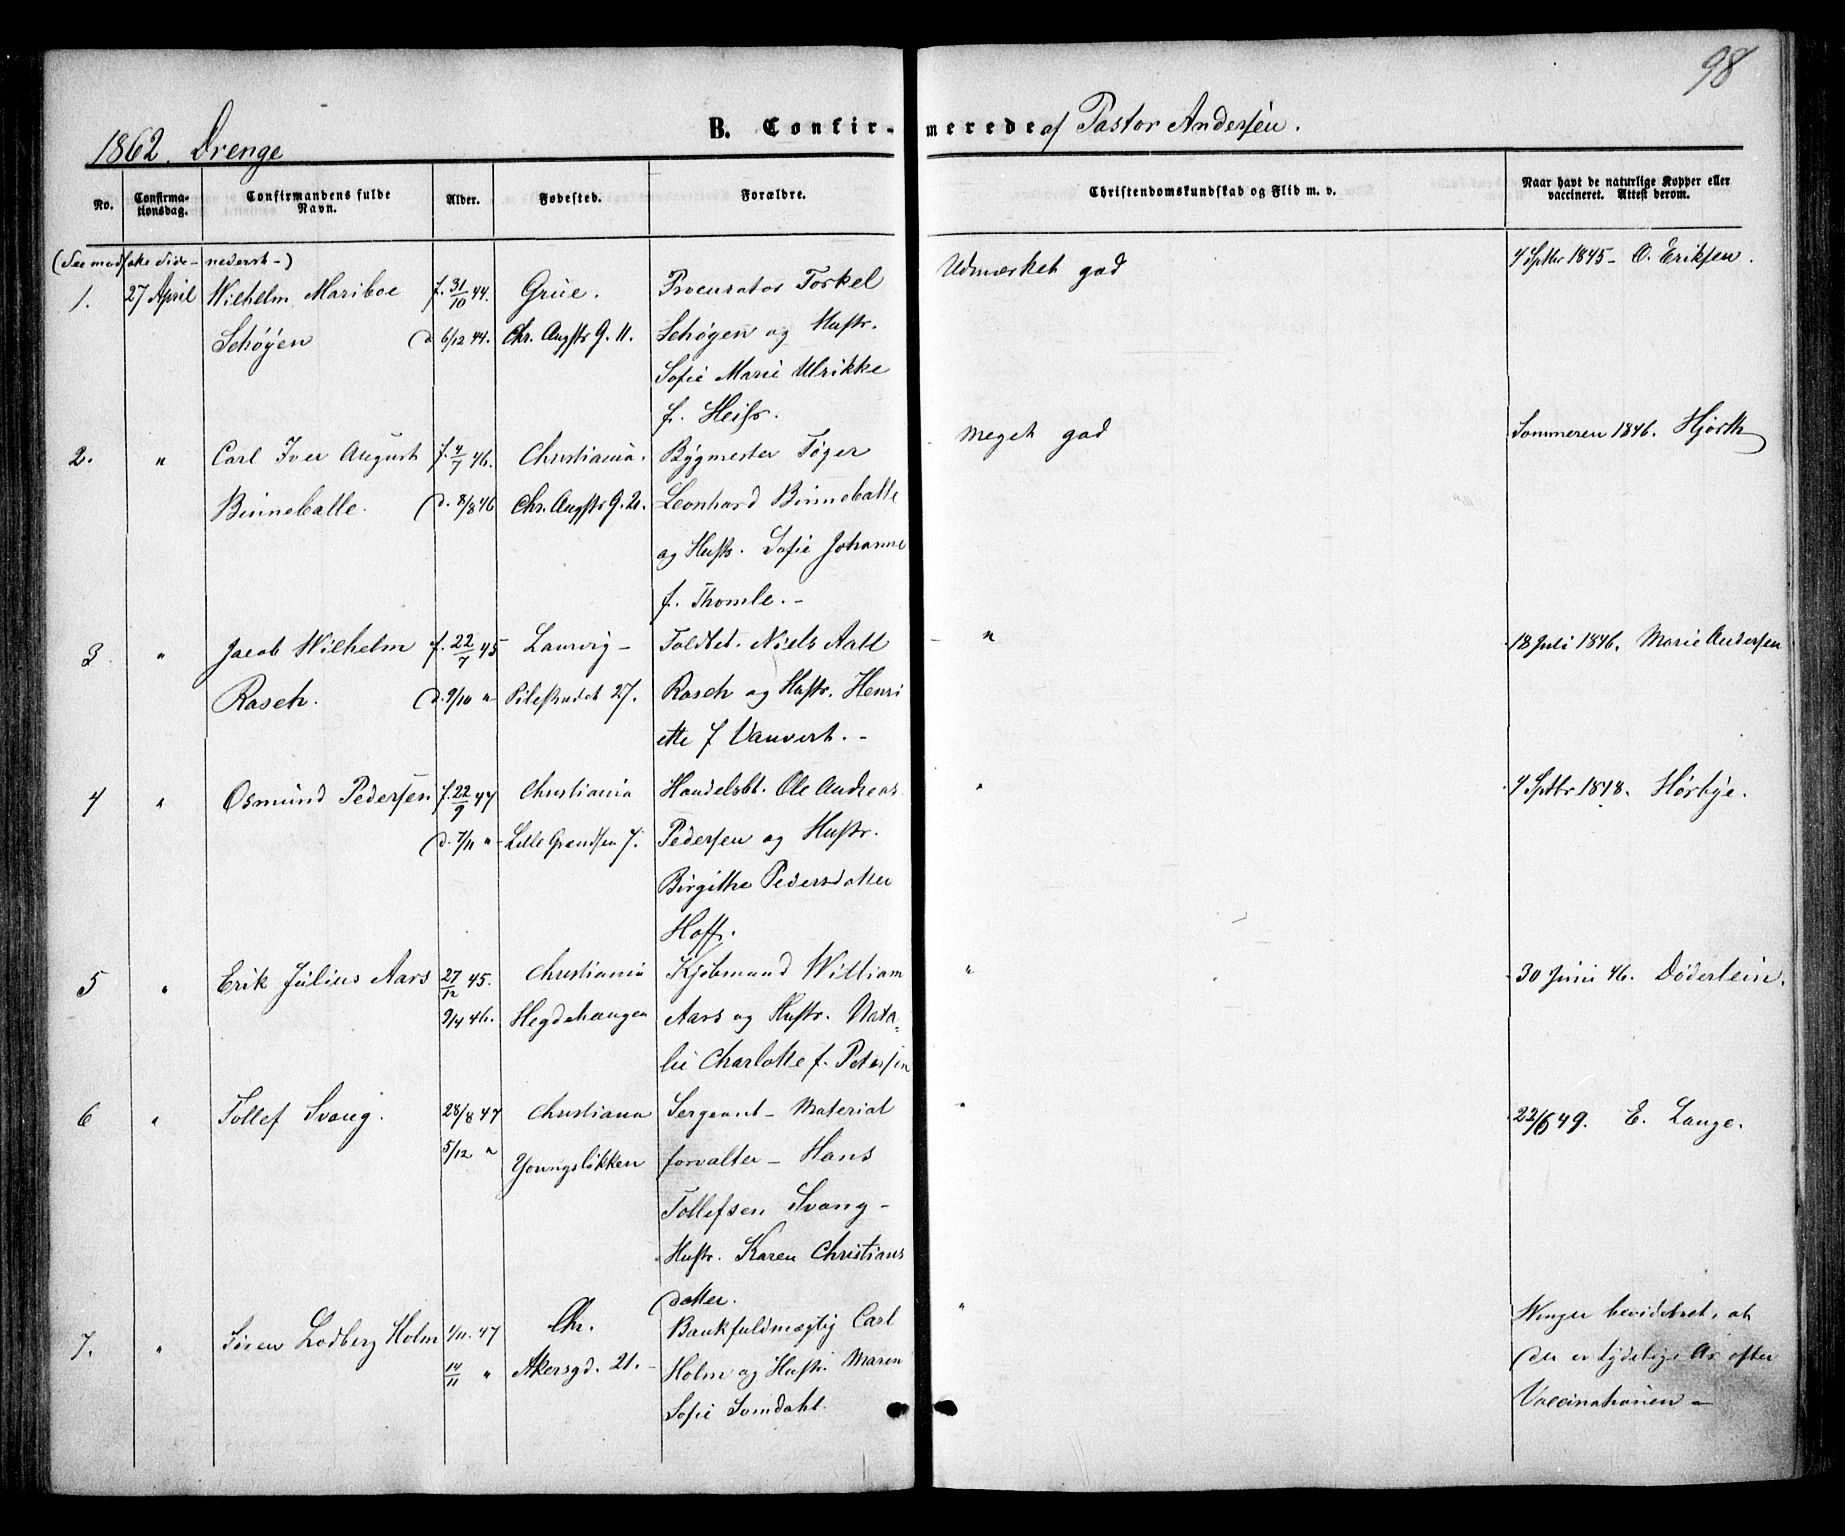 98
1862. Drenge
B. Confir-merede af Pastor Andersen.
No.
Confirma-
tionsdag.
Confirmandens fulde
Navn.
Alder.
Fødested.
Forældre.
Christendomskundskab og Flid m. v.
Naar havt de naturlige Kopper eller
vaccineret. Attest derom.
(See modsatte Side nederst)
1. 27 April Wilhelm Mariboe f. 31/10 44. Grue. Procurator Torkel Udmærket god 4 Septbr 1845 - O. Eriksen.
Schøyen d 6/12 44. Chr. Augstr G. 11. Schøyen og Hustr.
Sofie Marie Ulrikke
f. Heifs.
2. " Carl Iver August f. 4/7 46. Christiania. Bygmester Tøger Meget god Sommeren 1846. Hjorth
Binneballe. d. 8/8 46 Chr. Augstr G. 21. Leonhard Binneballe
og Hustr. Sofie Johanne
f. Thomle. -
3 " Jacob Wilhelm f. 22/7 45 Laurvig - Toldbet. Niels Aall " 18 Juli 1846. Marie Andersen
Rasch. d. 9/10 " Pilestrædet 27. Rasch og Hustr. Henri
ette f Vauvert. -
4 " Osmund Pedersen f. 22/9 47 Christiania Handelsbt. Ole Andreas " 4 Septbr 1848. Hørbye.
d. 7/11 " Lille Grændsen 7. Pedersen og Hustr.
Birgithe Pedersdatter
Hoff.
5 " Erik Julius Aars 27/12 45. Christiania Kjøbmand William " 30 Juni 46. Døderlein.
9/4 46. Hegdehaugen Aars og Hustr. Nata-
lie Charlotte f. Petersen
6 " Tollef Svang. 28/8 47 Christiana Sergeant - Material " 22/6 49. E. Lange.
5/12 " Youngsløkken forvalter - Hans
Tollefsen Svang -
Hustr. Karen Christians
datter.
7. " Søren Lodberg Holm 1/11. 47 Chr. Bankfuldmægtig Carl " Winger bevidnet, at
14/11 " Akersgd. 21. - Holm og Hustr. Maren der er tydelige Ar efter
Sofie Somdahl. Vaccinationen -